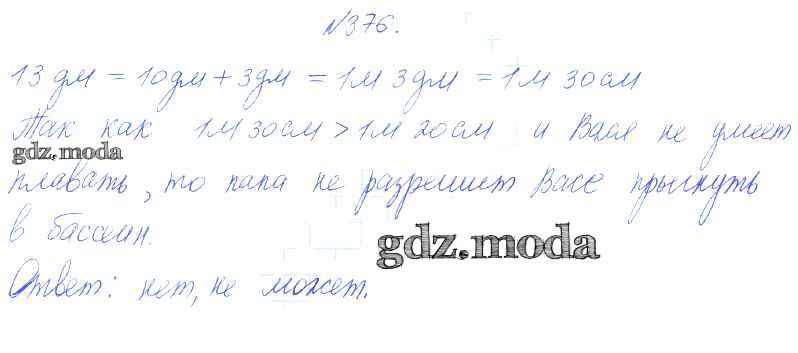 №376.
13 дм = 10дм + 3дм = 1м 3дм = 1м 30см
Так как 1м 30см > 1м 20см и Вася не умеет
gdz.moda
плавать, то папа не разрешит Васе прыгнуть
в бассейн.
gdz.moda
Ответ: нет, не может.